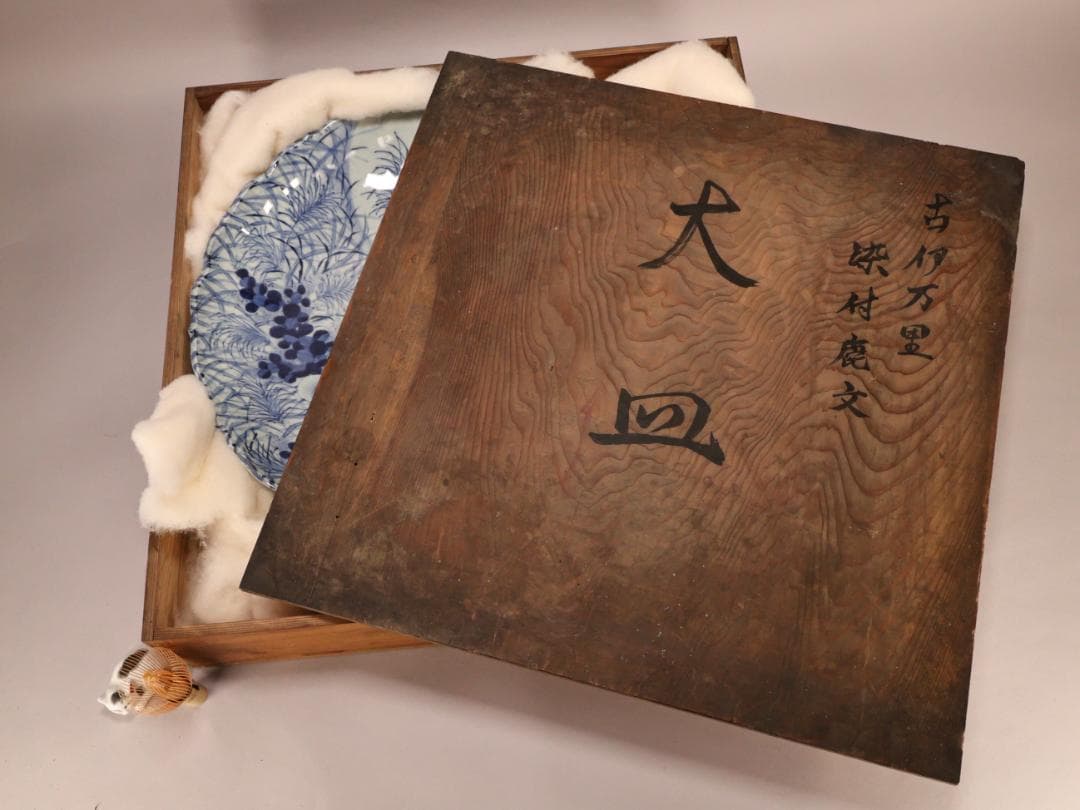 古伊万里
染付鹿文
大皿